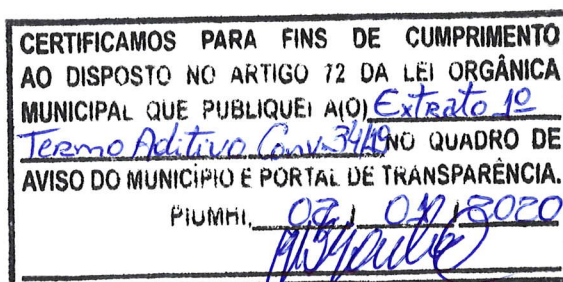 CERTIFICAMOS PARA FINS DE CUMPRIMENTO
AO DISPOSTO NO ARTIGO 72 DA LEI ORGÂNICA
MUNICIPAL QUE PUBLIQUEI A(O) Extrato 1º
Termo Aditivo Conv. 34/19 NO QUADRO DE
AVISO DO MUNICÍPIO E PORTAL DE TRANSPARÊNCIA.
PIUMHI, 02 / 01 / 2020